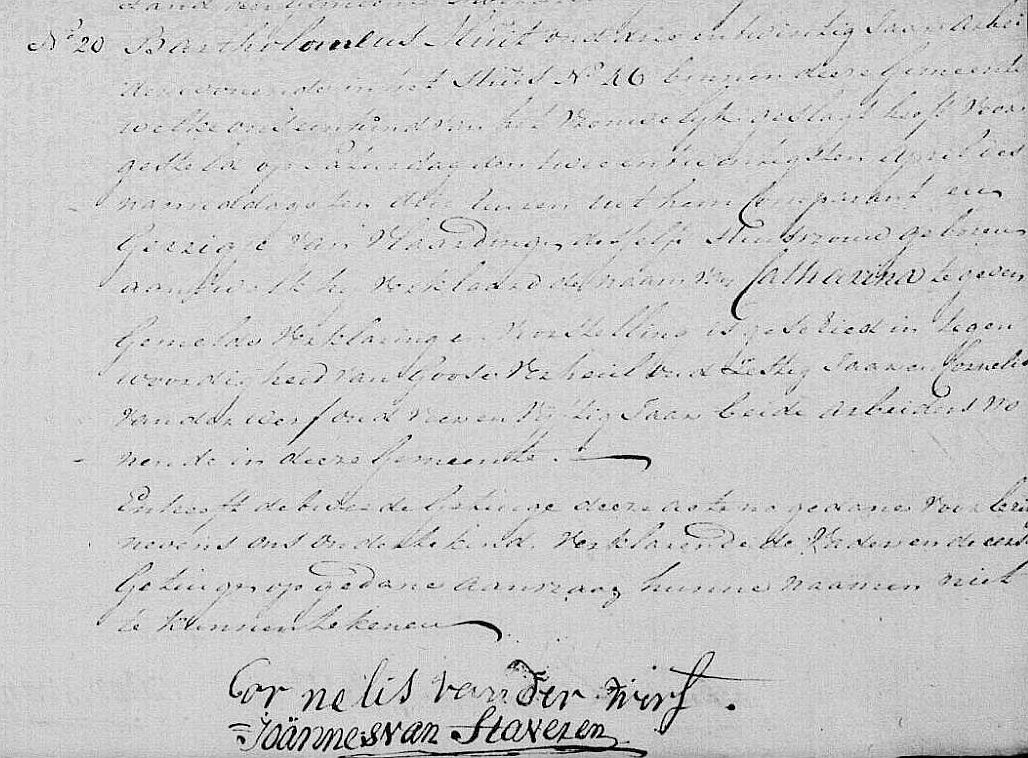 No 20 Bartholomeus Sluit oud drie en twintig Jaar Arbei
der wonende in het Huis No 26 binnen deeze Gemeente
welke ons een kind van het Vrouwelyk geslagt heeft voor
gesteld op Saturdag den twee en twintigsten April des
namiddags ten drie uuren uit hem Comparant en
van Vlaardingen deszelfs Huisvrouw gebooren
aan het welk hy verklaard de naam van Catharina te geven
Gemelde verklaring en voorstelling is geschied in tegen
woordigheid van Goose Verheul oud Zestig Jaar en Cornelis
van der werf oud Vyftig Jaar beide arbeiders wo
nende in deeze Gemeente.
En heeft de tweede Getuige deeze acte na gedane voorlezing
nevens ons ondertekend. Verklarende de Vader en de eerste
Getuige op gedane aanvraag hunne naamen niet
te kunnen tekenen
Cornelis van der Werf.
Joännes van Staveren